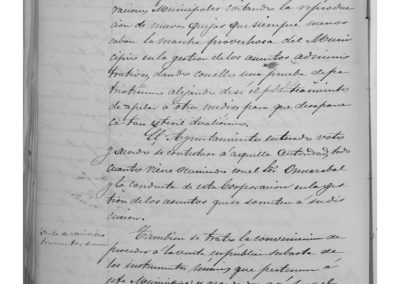 raciones Municipales evitando la reproduc-
cion de nuevas quejas que siempre menos
caban la marcha provechosa del Muni
cipio en la gestion de los asuntos adminis
trativos, dando con ello una prueba de pa
triotismo alejando de sí el planteamiento
de apelar a otros medios para que desapare
ca tan esteril dualismo.
El Ayuntamiento enterado votó
y acordó se conteste a aquella autoridad, todo
cuanto viene ocurriendo con el Sr.
y la conducta de esta Corporacion en la ges
tion de los asuntos que se someten a su dis
cusion.
Tambien se trató la conveniencia de
proceder a la venta en publica subasta de
los instrumentos musicos que pertenecen á
este Municipio